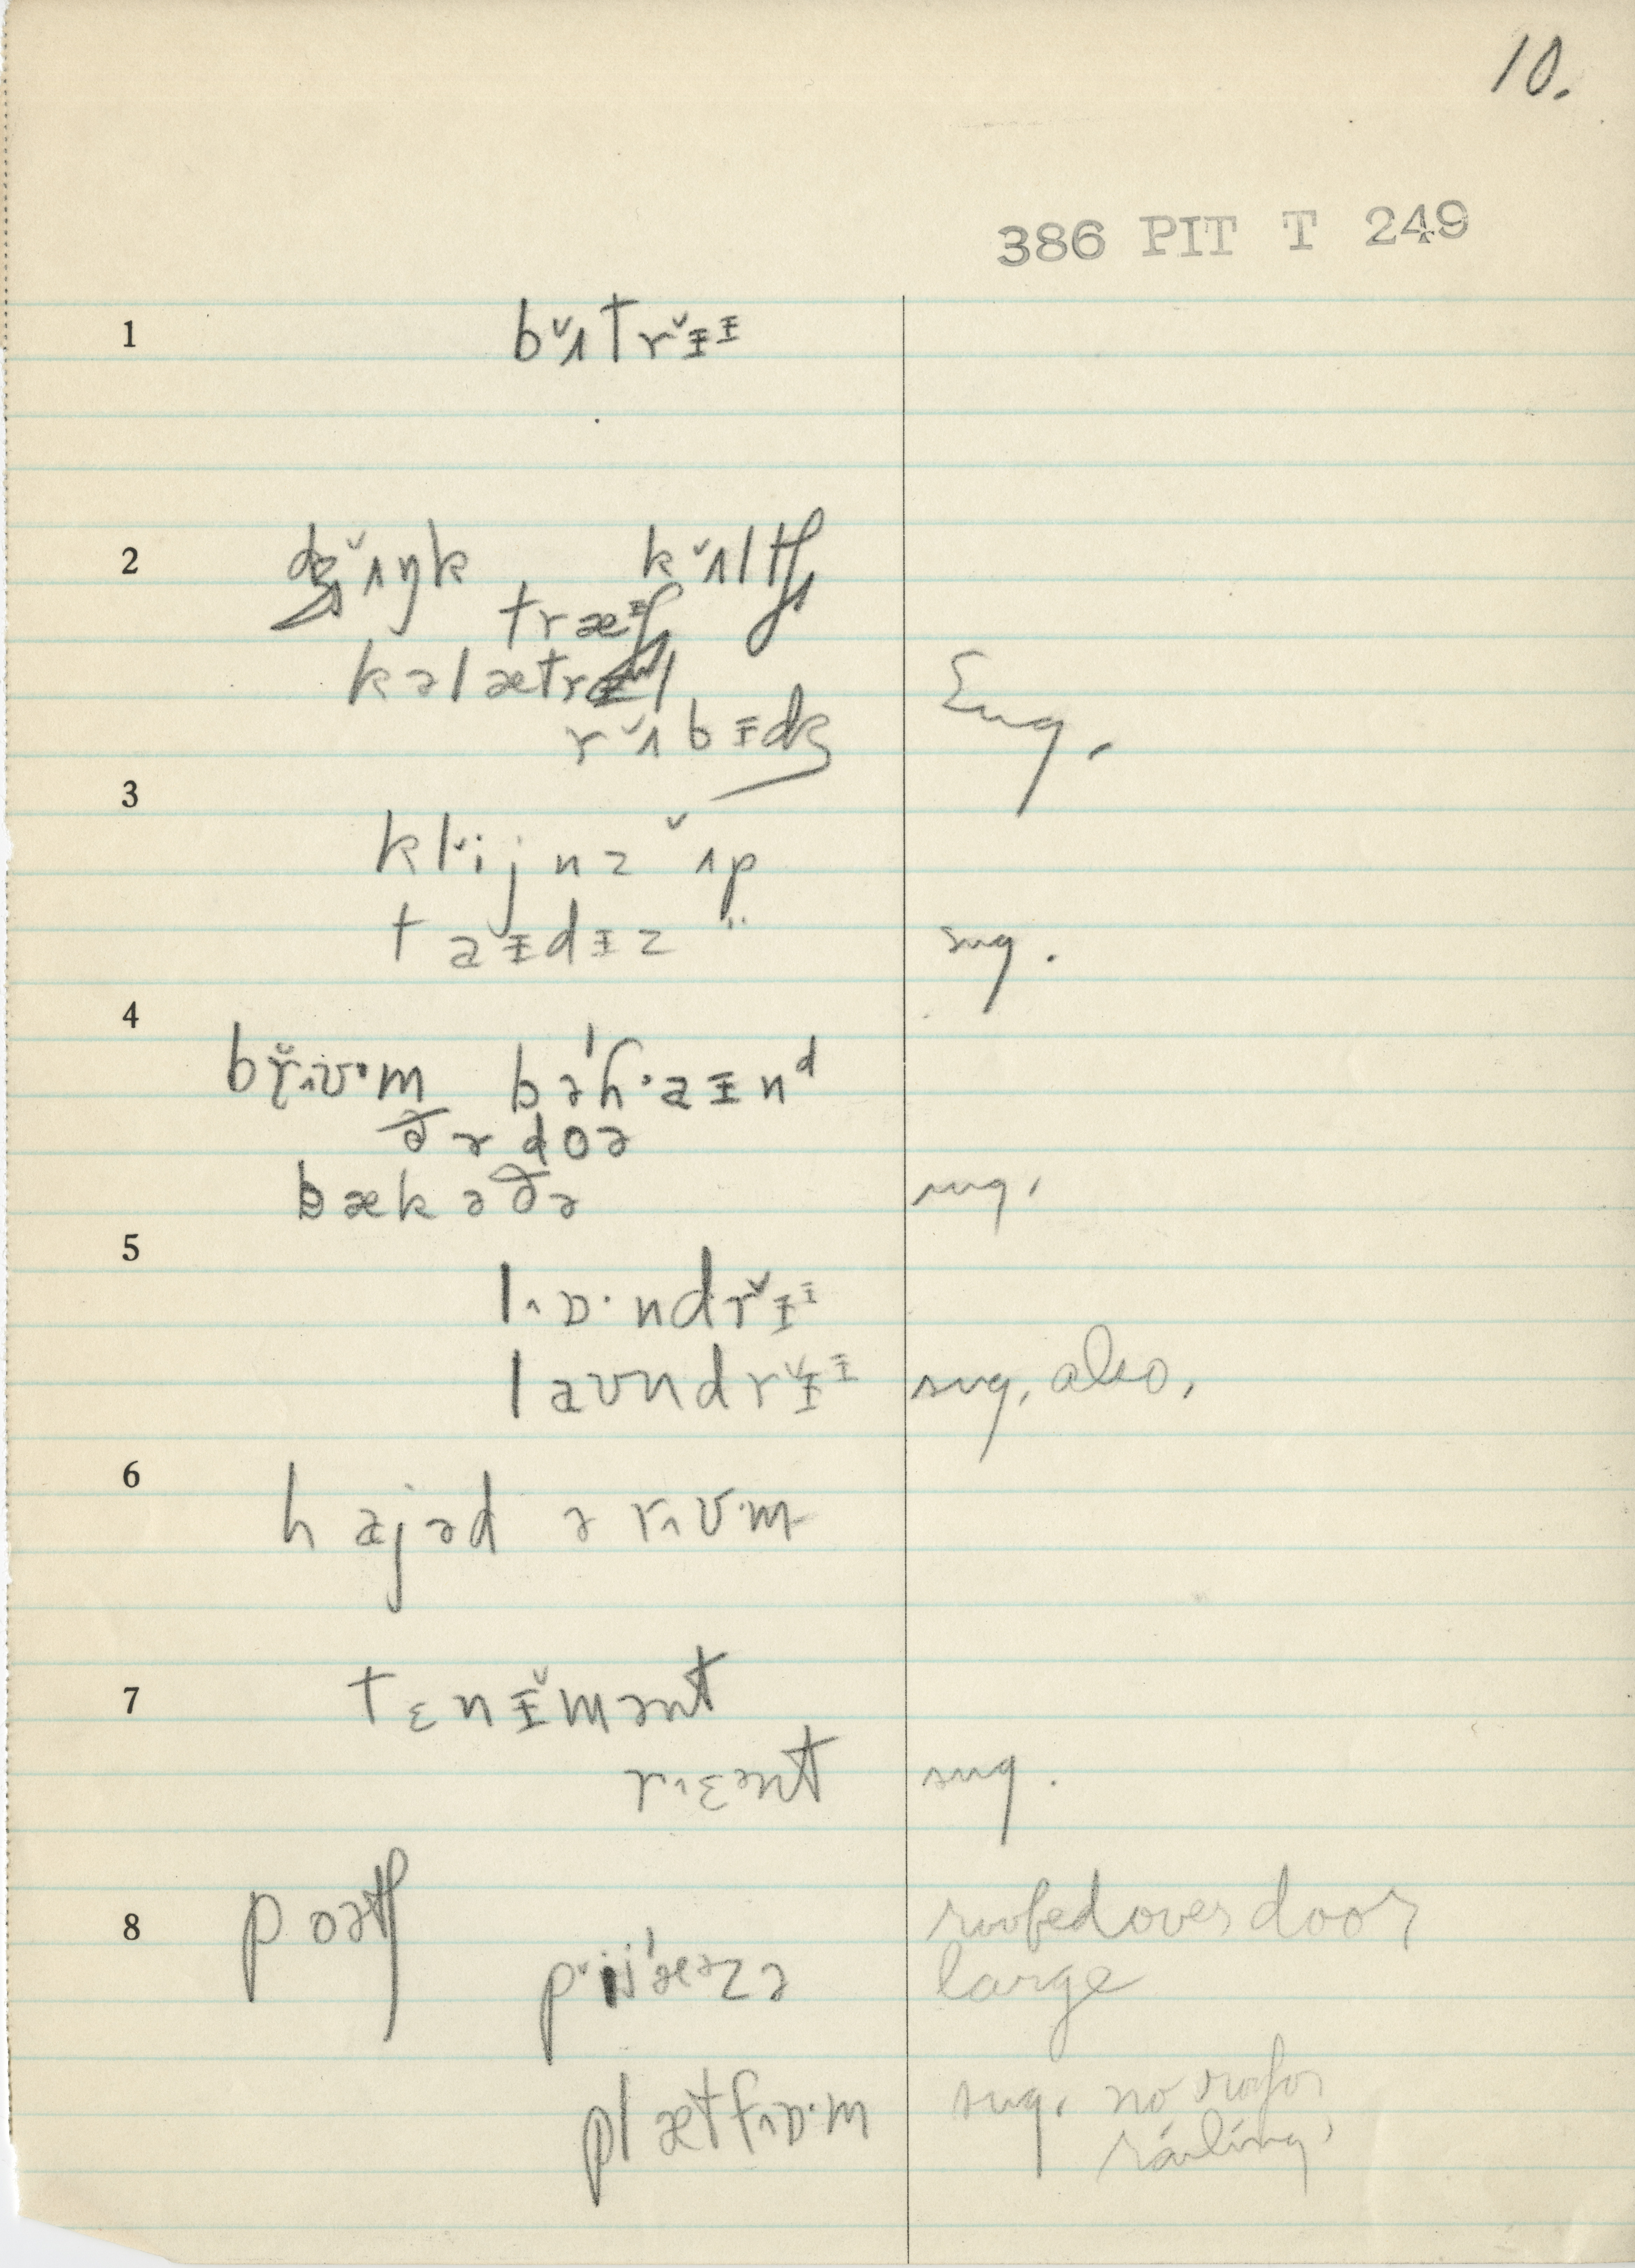 10.
386 PIT T 249
1 bʌ̌trɪ̌ᶦ
2 dʒʌ̌ŋk kʌ̌ltʃ
træᶦʃ
kəlætrəl
rʌ̌bɪdʒ Sug.
3 klˇijnz ʌ̌p
taɪdɪz " sug.
4 br̆ʌʊ·m bəh'·aɪnᵈ
ðə doə
bækəðə sug.
5 lʌɒ·ndrɪ̌ᶦ
laʊndrɪ̌ᶦ sug. also.
6 hajəd ə rʌʊ·m
7 tɛnɪ̌mənt
r·ʌɛənt sug.
8 poətʃ roofed over door
pˇij'æᵊzə large
plætfʌɒ·m sug. no roof or
railing.